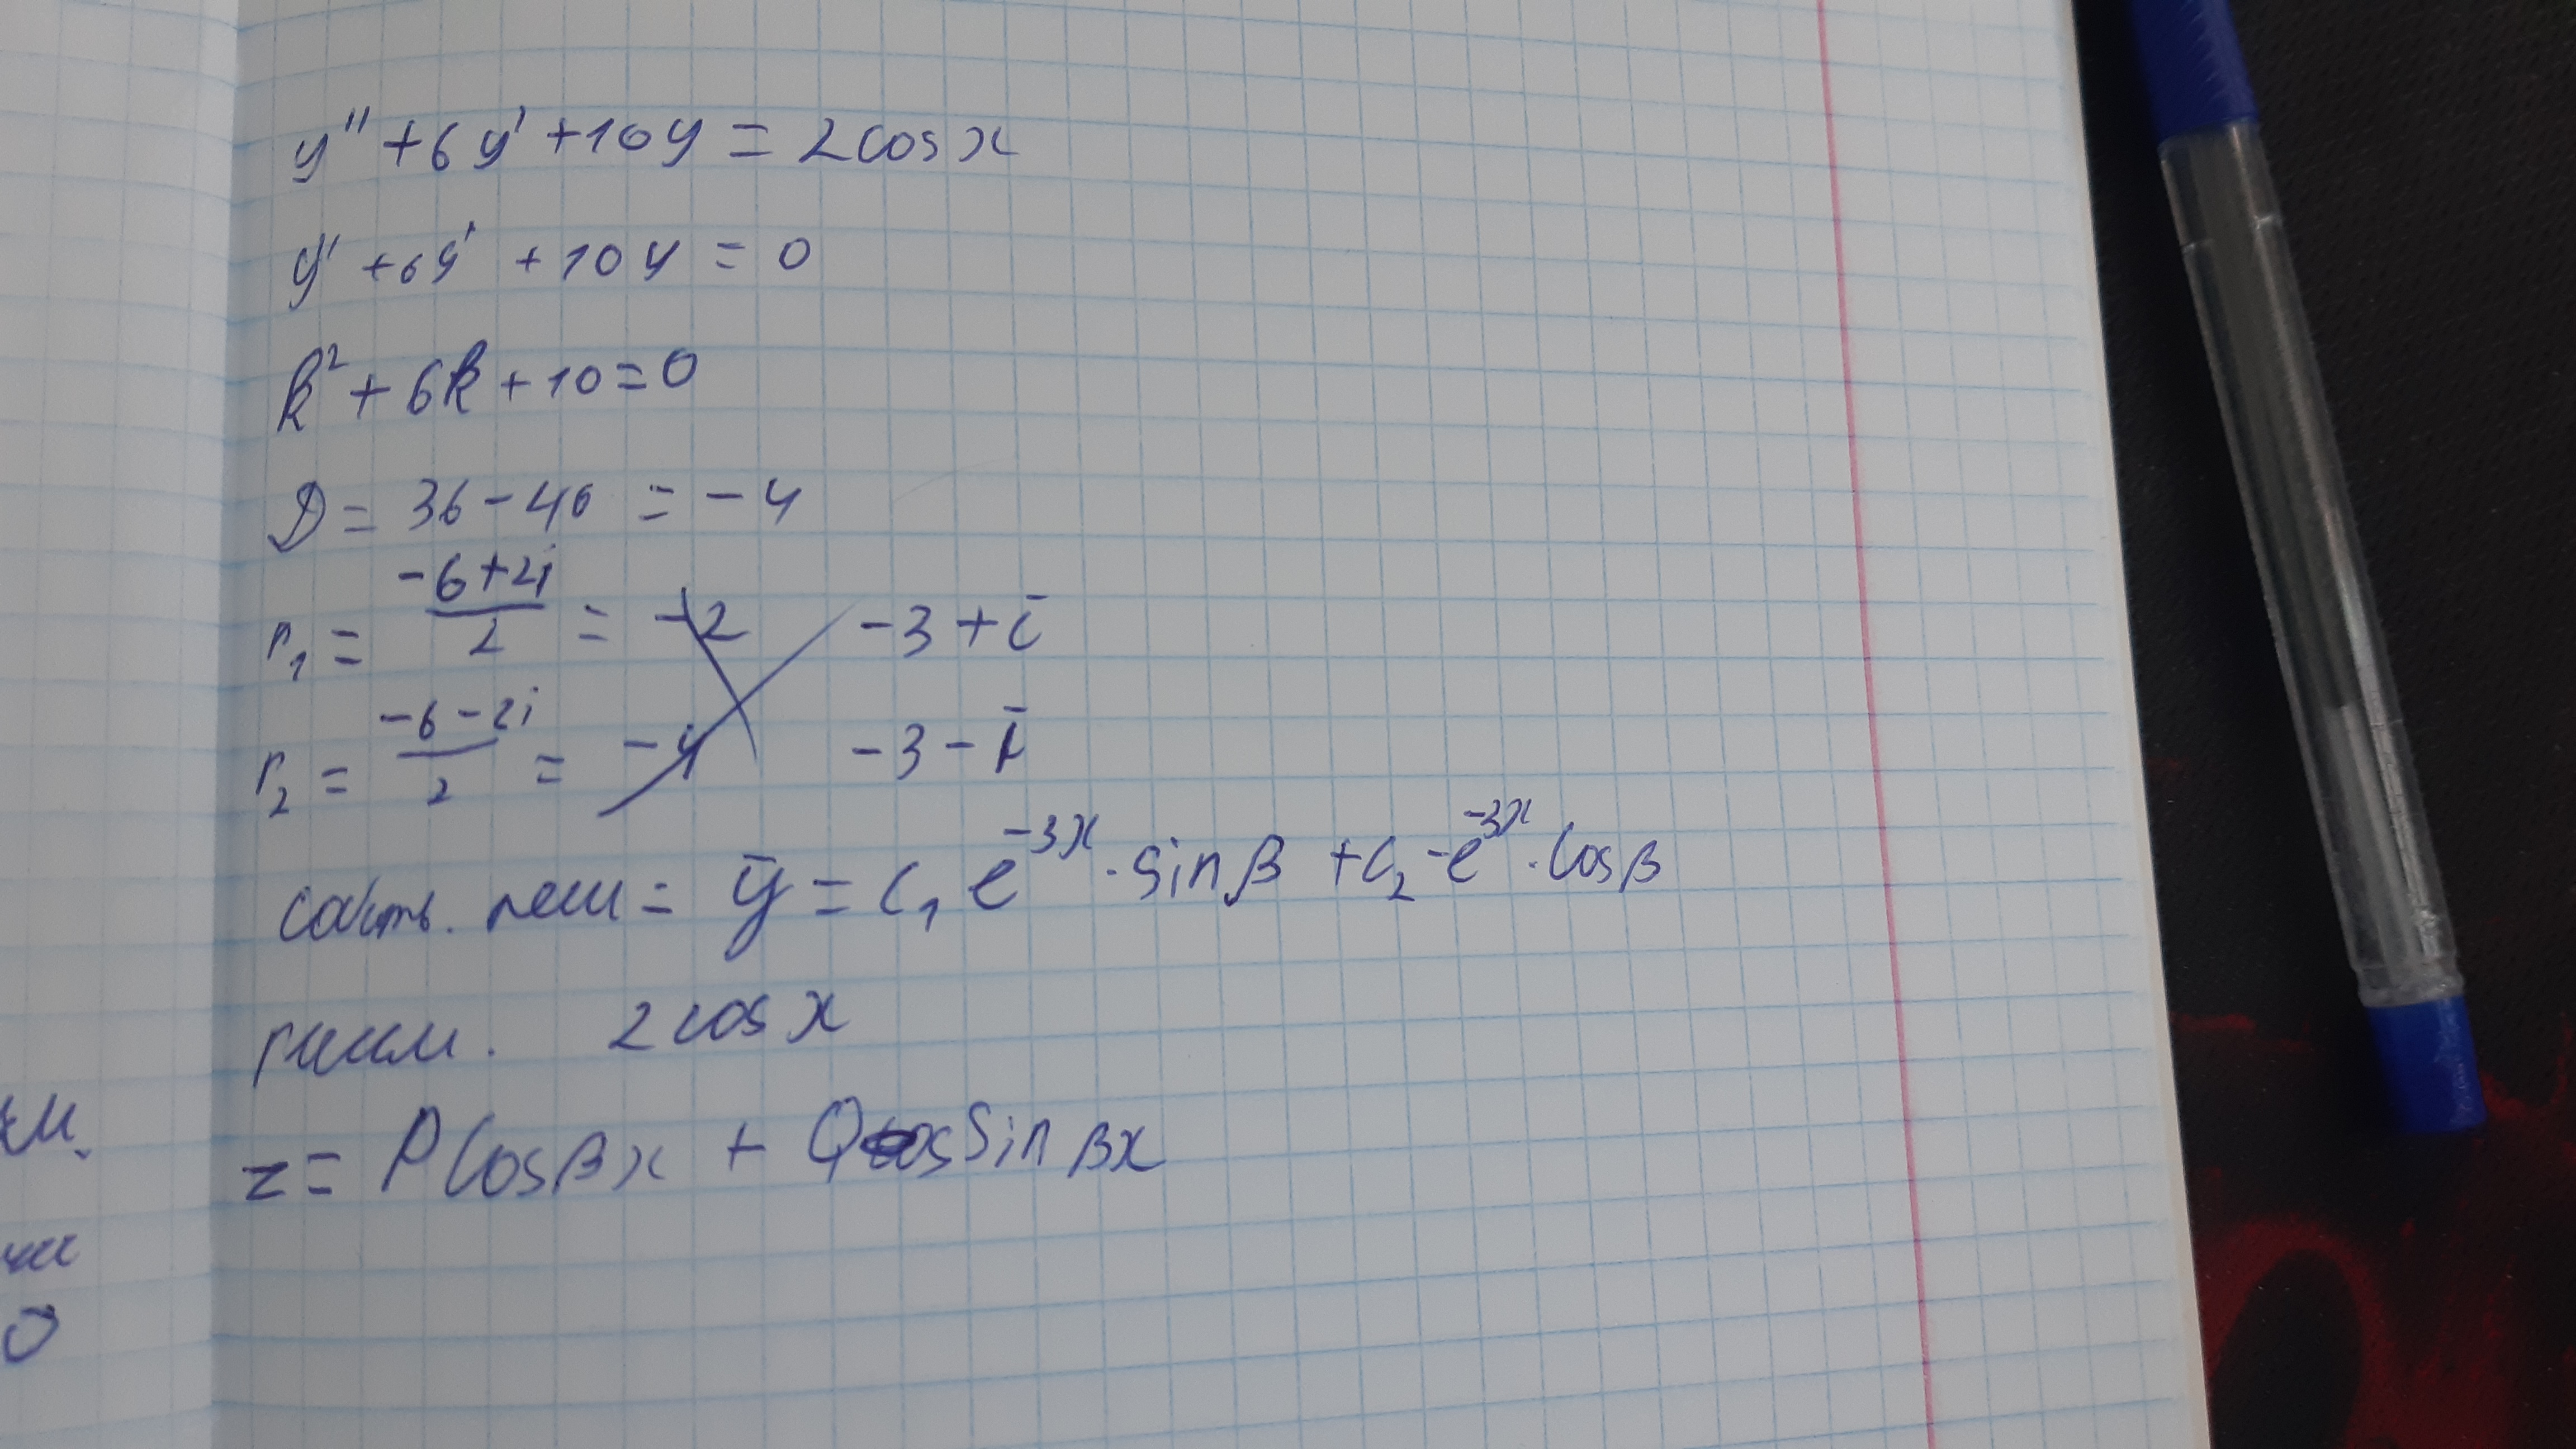 y'' + 6y' + 10y = 2cos x
y'' + 6y' + 10y = 0
k² + 6k + 10 = 0
D = 36 - 40 = -4
r₁ = (-6+2i)/2 = -2 -3 + i
r₂ = (-6-2i)/2 = -4 -3 - i
реш = ȳ = c₁ e^(-3x) · sin β + c₂ - e^(-3x) · cos β
2 cos x
z = P cos βx + Q cos sin βx